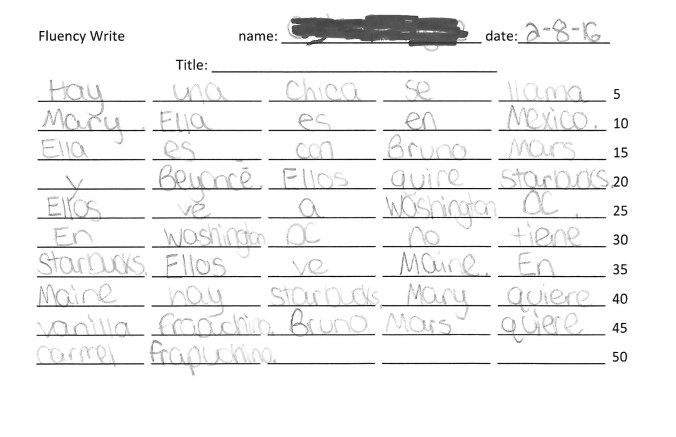 Fluency Write name: date: 2-8-16
Title:
Hay una chica se llama 5
Mary. Ella es en Mexico. 10
Ella es con Bruno Mars 15
y Beyoncé. Ellos quire starbucks. 20
Ellos ve a Washington DC. 25
En Washington DC no tiene 30
Starbucks. Ellos ve Maine. En 35
Maine hay starbucks. Mary quiere 40
vanilla Bruno Mars quiere 45
carmel Frapuchino. 50